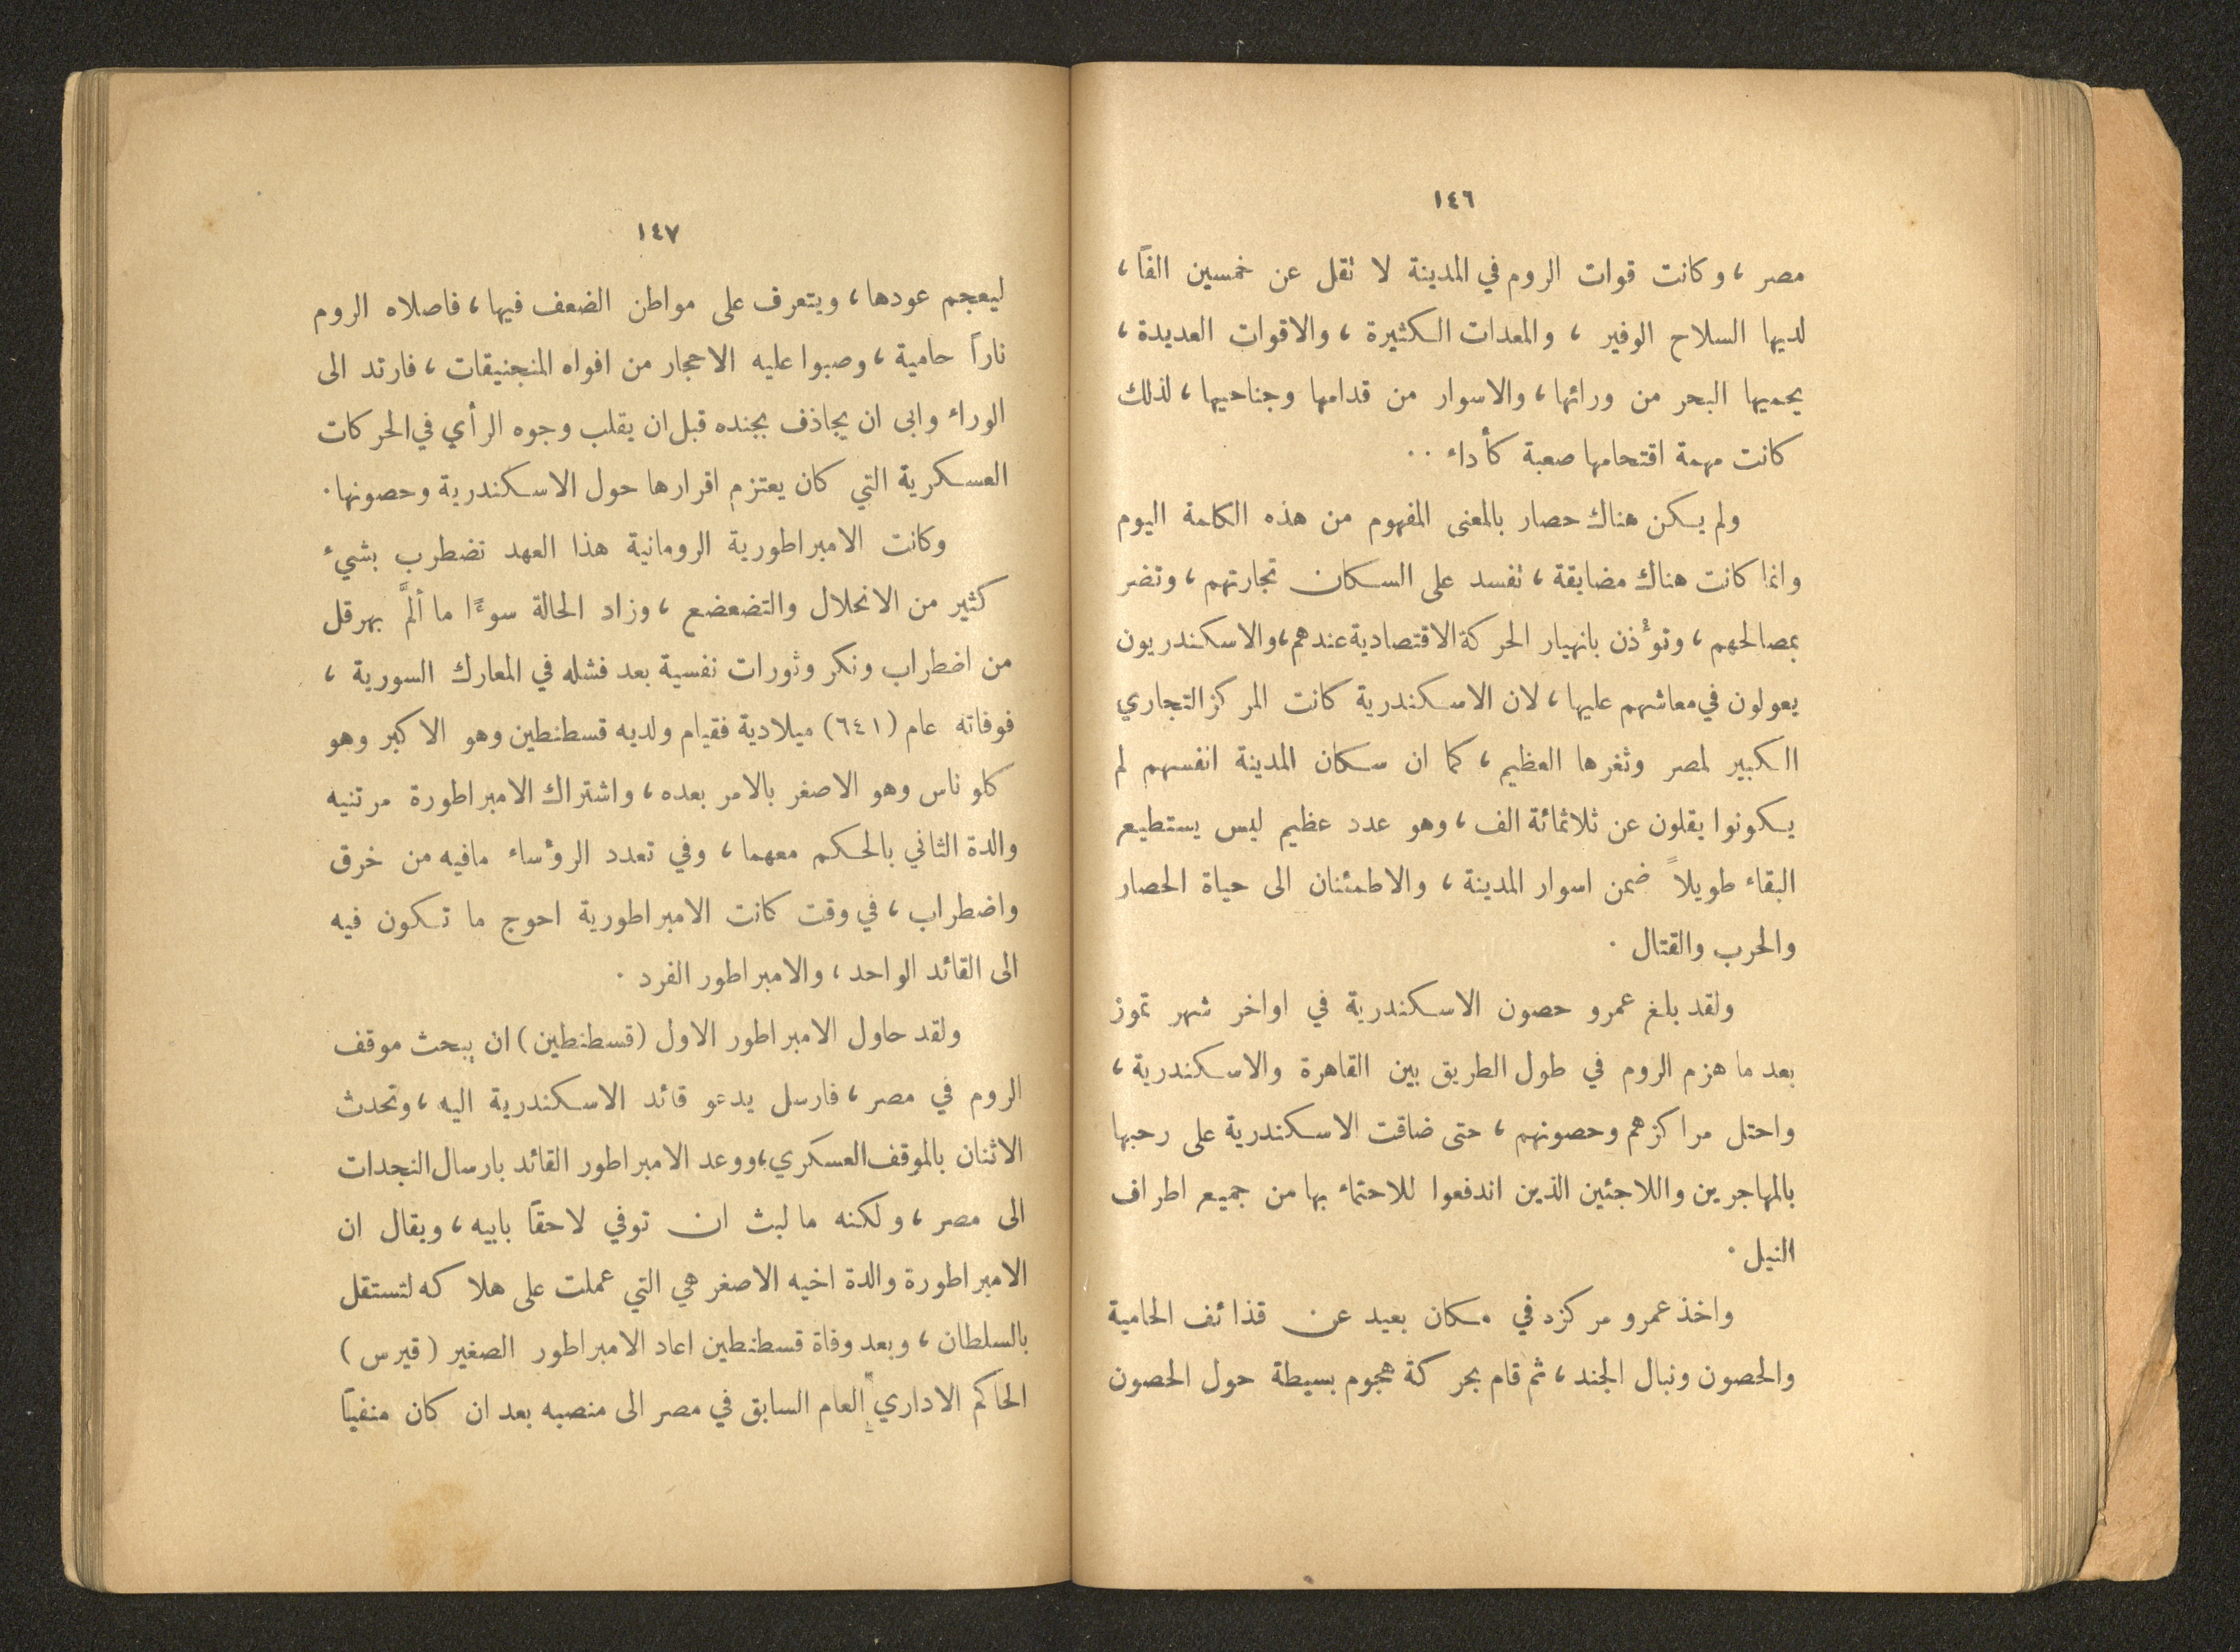 ١٤٦
مصر ، وكانت قوات الروم في المدينة لا تقل عن خمسين الفاً ،
لديها السلاح الوفير ، والمعدات الكثيرة ، والاقوات العديدة ،
يحميها البحر من ورائها ، والاسوار من قدامها وجناحيها ، لذلك
كانت مهمة اقتحامها صعبة كأداء ..
ولم يكن هناك حصار بالمعنى المفهوم من هذه الكلمة اليوم
وانما كانت هناك مضايقة ، تفسد على السكان تجارتهم ، وتضر
بمصالحهم ، وتؤذن بانهيار الحركة الاقتصادية عندهم ، والاسكندريون
يعولون في معاشهم عليها ، لان الاسكندرية كانت المركز التجاري
الكبير لمصر وثغرها العظيم ، كما ان سكان المدينة انفسهم لم
يكونوا يقلون عن ثلاثمائة الف ، وهو عدد عظيم ليس يستطيع
البقاء طويلاً ضمن اسوار المدينة ، والاطمئنان الى حياة الحصار
والحرب والقتال .
ولقد بلغ عمرو حصون الاسكندرية في اواخر شهر تموز
بعد ما هزم الروم في طول الطريق بين القاهرة والاسكندرية ،
واحتل مراكزهم وحصونهم ، حتى ضاقت الاسكندرية على رحبها
بالمهاجرين واللاجئين الذين اندفعوا للاحتماء بها من جميع اطراف
النيل .
واخذ عمرو مركزه في مكان بعيد عن قذائف الحامية
والحصون ونبال الجند ، ثم قام بحركة هجوم بسيطة حول الحصون
١٤٧
ليعجم عودها ، ويتعرف على مواطن الضعف فيها ، فاصلاه الروم
ناراً حامية ، وصبوا عليه الاحجار من افواه المنجنيقات ، فارتد الى
الوراء وابى ان يجاذف بجنده قبل ان يقلب وجوه الرأي في الحركات
العسكرية التي كان يعتزم اقرارها حول الاسكندرية وحصونها .
وكانت الامبراطورية الرومانية هذا العهد تضطرب بشيء
كثير من الانحلال والتضعضع ، وزاد الحالة سوءًا ما ألمَّ بهرقل
من اضطراب ونكر وثورات نفسية بعد فشله في المعارك السورية ،
فوفاته عام (٦٤١) ميلادية فقيام ولديه قسطنطين وهو الاكبر وهو
كلوناس وهو الاصغر بالامر بعده ، واشتراك الامبراطورة مرتنيه
والدة الثاني بالحكم معهما ، وفي تعدد الرؤساء مافيه من خرق
واضطراب ، في وقت كانت الامبراطورية احوج ما تكون فيه
الى القائد الواحد ، والامبراطور الفرد .
ولقد حاول الامبراطور الاول (قسطنطين) ان يبحث موقف
الروم في مصر ، فارسل يدعو قائد الاسكندرية اليه ، وتحدث
الاثنان بالموقف العسكري ، ووعد الامبراطور القائد بارسال النجدات
الى مصر ، ولكنه ما لبث ان توفي لاحقاً بابيه ، ويقال ان
الامبراطورة والدة اخيه الاصغر هي التي عملت على هلاكه لتستقل
بالسلطان ، وبعد وفاة قسطنطين اعاد الامبراطور الصغير ( قيرس )
الحاكم الاداري العام السابق في مصر الى منصبه بعد ان كان منفياً